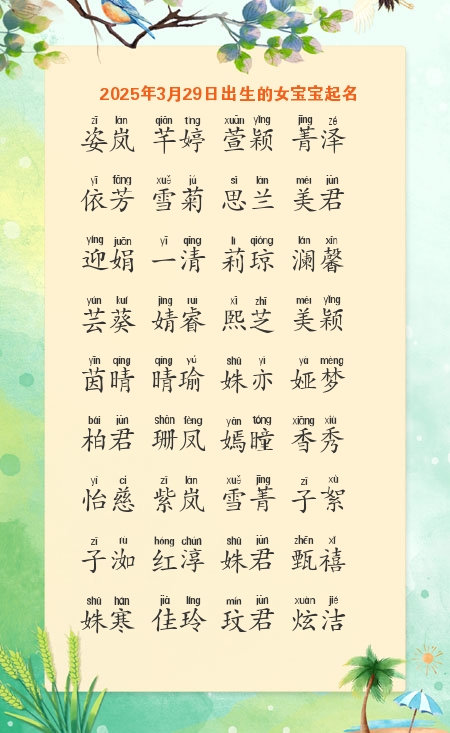 2025年3月29日出生的女宝宝起名
zī lán qiān tíng xuān yǐng jīng zé
姿岚 芊婷 萱颖 菁泽
yī fāng xuě jú sī lán měi jūn
依芳 雪菊 思兰 美君
yíng juān yī qīng lì qióng lán xīn
迎娟 一清 莉琼 澜馨
yún kuí jìng ruì xī zhī měi yǐng
芸葵 婧睿 熙芝 美颖
yīn qíng qíng yú shū yì yà mèng
茵晴 晴瑜 姝亦 娅梦
bǎi jūn shān fèng yān tóng xiāng xiù
柏君 珊凤 嫣瞳 香秀
yí cí zǐ lán xuě jīng zǐ xù
怡慈 紫岚 雪菁 子絮
zǐ rù hóng chún shū jūn zhēn xǐ
子洳 红淳 姝君 甄禧
shū hán jiā líng mín jūn xuàn jié
姝寒 佳玲 玟君 炫洁